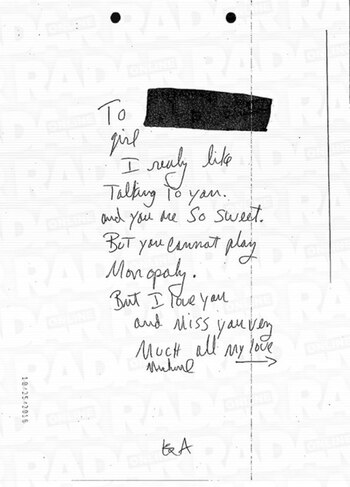 To
girl
I really like
Talking To you.
and you are So sweet.
But you cannot play
Monopoly.
But I love you
and Miss you very
Much all my love
Michael
10/25/2016